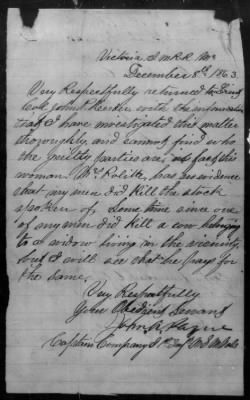 Victoria, I M R R Mo
December 8th 1863
Very Respectfully returned to Lieut
Col. John with the information
that I have investigated this matter
thoroughly and cannot find who
the guilty parties are, as for this
woman. Mrs. has no evidence
that my men did Kill the stock
spoken of. Some time since one
of my men did kill a cow belonging
to a widow living in the vicinity
but I will see that he pays for
the same.
Very Respectfully
Your Obedient Servant
John R.
Captain Company